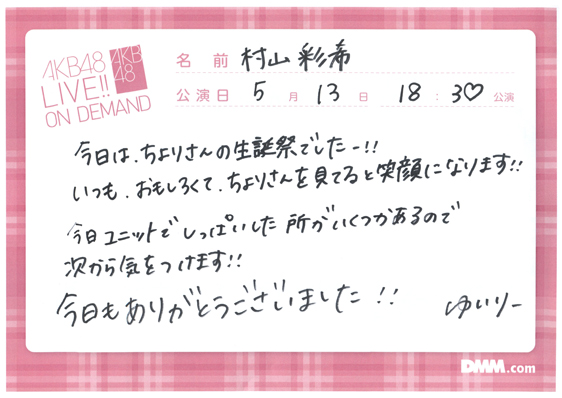 AKB48
LIVE!!
ON DEMAND
AKB
48
名前 村山彩希
公演日 5月13日 18:30公演
今日は、ちよりさんの生誕祭でしたー!!
いつも、おもしろくて、ちよりさんを見てると笑顔になります!!
今日ユニットでしっぱいした所がいくつかあるので
次から気をつけます!!
今日もありがとうございました!!
ゆいりー
DMM.com